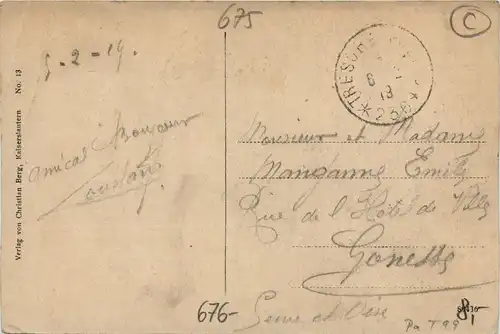 675
C
5-2-19.
TRESOR ET POSTES
6
19
*236*
Amical Bonjour
Verlag von Christian Berg, Kaiserslautern No. 13
Monsieur et Madame
Manganne Emile
Rue de l'Hôtel de Ville
Gonesse
Seine et Oise
676-
8,-
Pa T 99